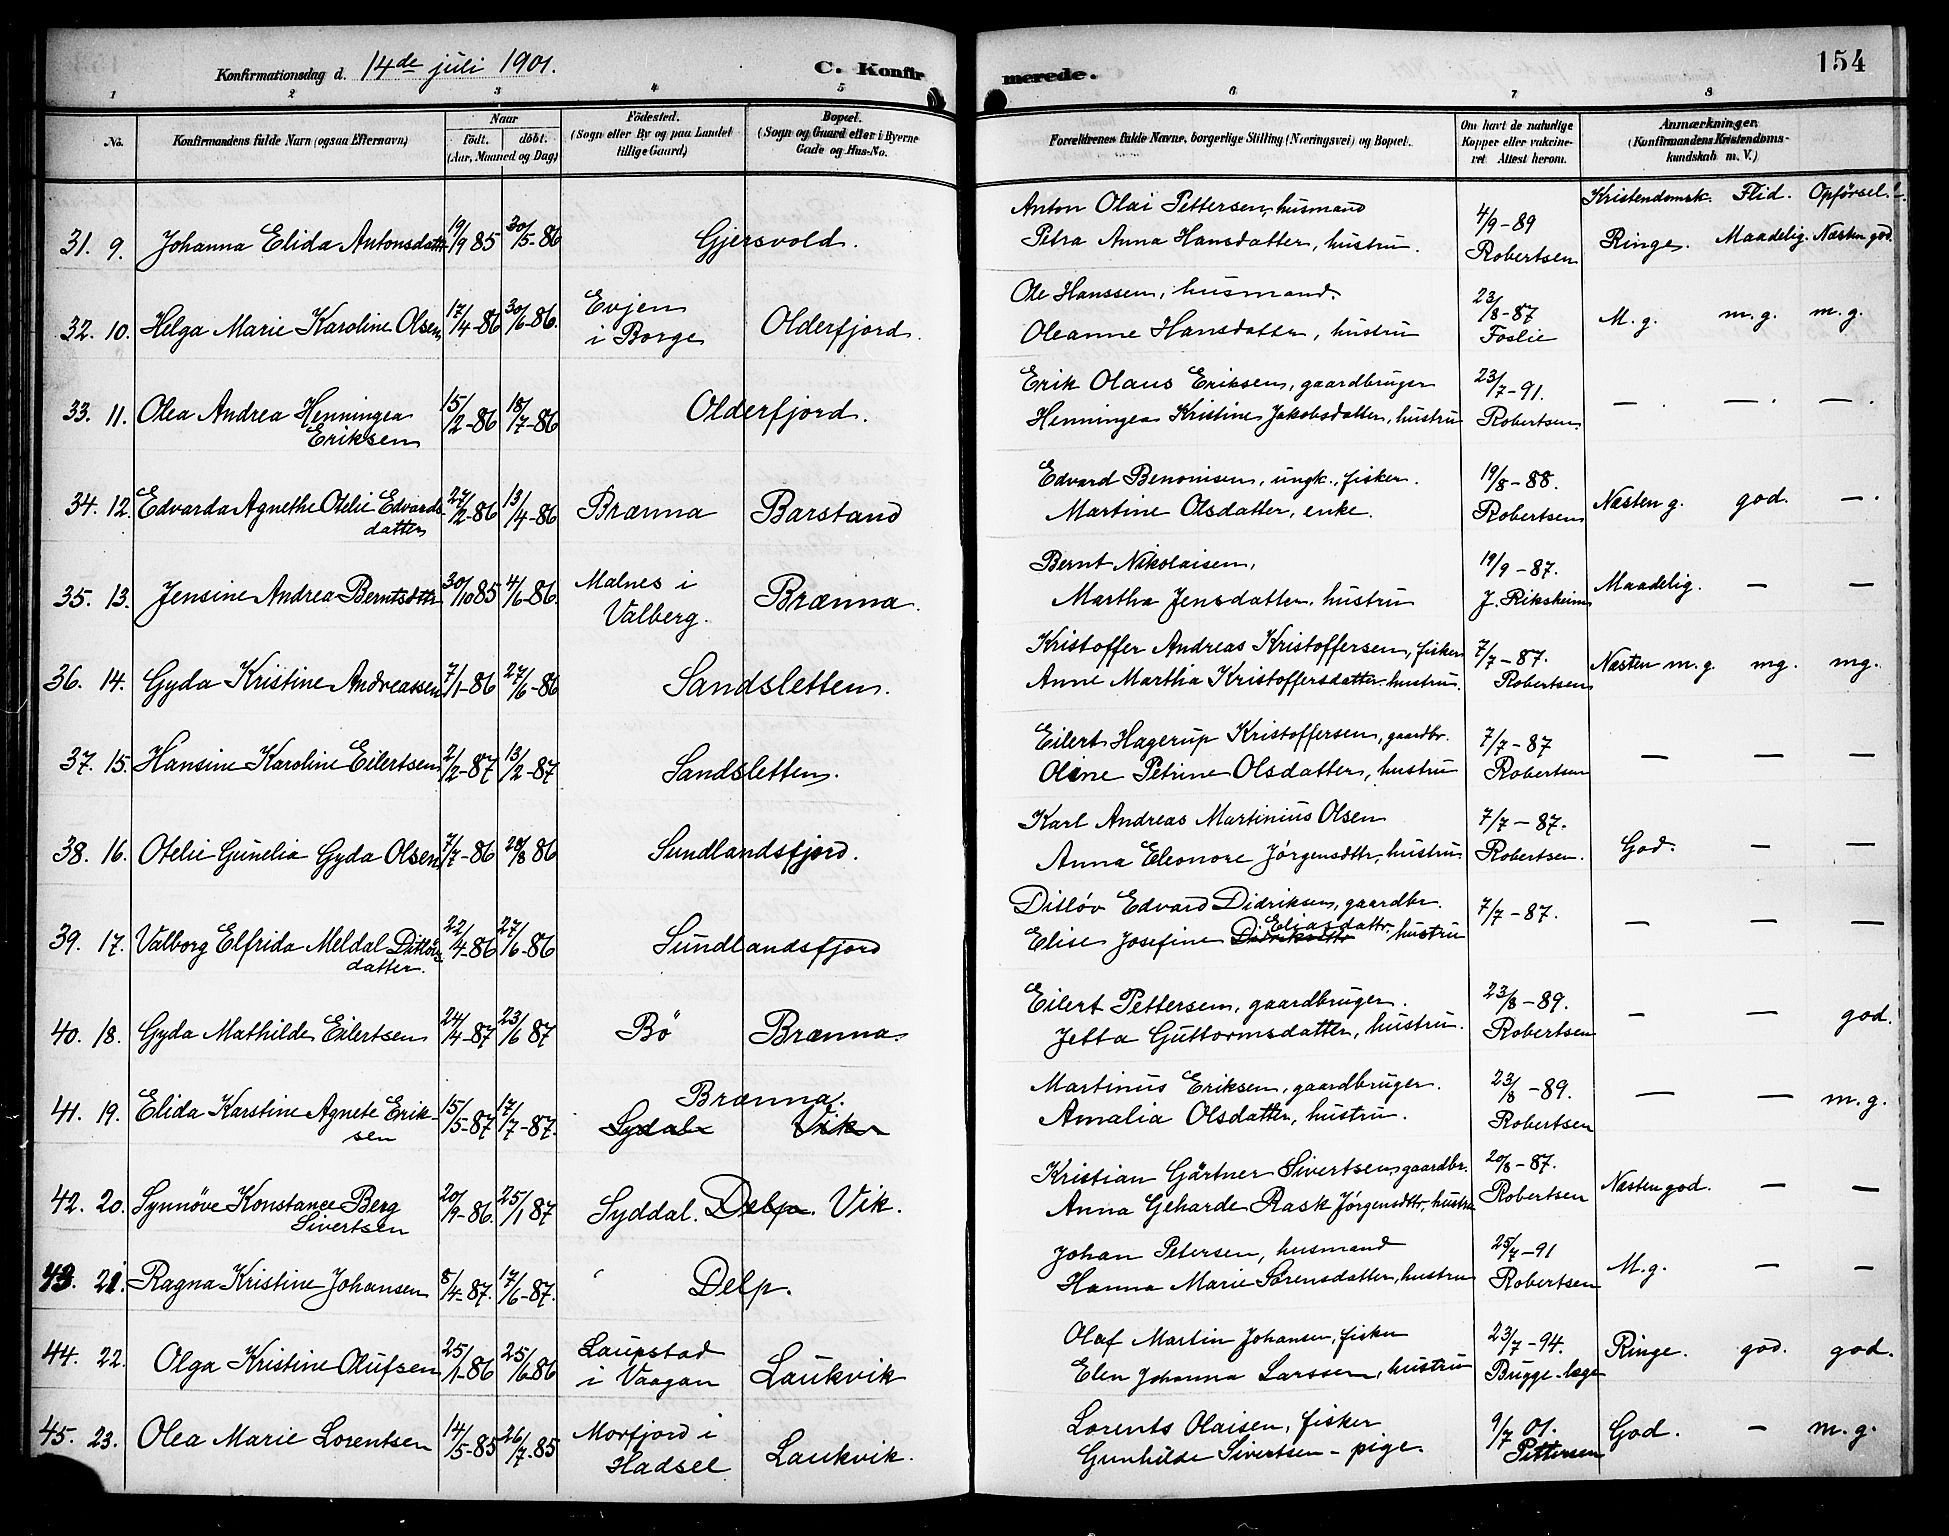 Konfirmationsdag d. 14de juli 1901. C. Konfirmerede. 154
1 2 3 4 5 6 7 8
No. Konfirmandens fulde Navn (ogsaa Efternavn) Naar født. døbt. (Aar, Maaned og Dag) Fødested. (Sogn eller By og paa Landet tillige Gaard) Bopæl. (Sogn og Gaard eller i Byerne Gade og Hus-No. Forældrenes fulde Navne, borgerlige Stilling (Næringsvei) og Bopæl. Om havt de naturlige Kopper eller vakcineret Attest herom. Anmærkninger. (Konfirmandens Kristendomskundskab m. V.)
Kristendomsk. Flid. Opførsel.
31. 9. Johanna Elida Antonsdatter 19/9 85 30/5-86 Gjersvold. Anton Olai Pettersen, husmand
Petra Anna Hansdatter, hustru. 4/9-89 Robertsen Ringe. Maadelig. Næsten god.
32. 10. Helga Marie Karoline Olsen 17/4-86 30/6-86. Evjen i Borge Olderfjord. Ole Hanssen, husmand.
Oleanne Hansdatter, hustru 23/8-87 Foslie M. g. m. g. m. g.
33. 11. Olea Andrea Henningea Eriksen 15/2-86 18/7-86 Olderfjord. Erik Olaus Eriksen, gaardbruger
Henningea Kristine Jakobsdatter, hustru 23/7-91. Robertsen. — . — . — .
34. 12. Edvarda Agnethe Otelie Edvardsdatter 27/2-86 13/4-86 Brænna Barstand Edvard Benonisen, ungk., fisker.
Martine Olsdatter, enke. 19/8-88. Robertsen Næsten g. god. — .
35. 13. Jensine Andrea Berntsdttr 30/10 85 4/6-86. Malnes i Valberg. Brænna. Bernt Nikolaisen,
Martha Jensdatter, hustru 19/9-87. J. Riksheim Maadelig. — —
36. 14. Gyda Kristine Andreassen 7/1-86 27/6-86 Sandsletten. Kristoffer Andreas Kristoffersen, fisker
Anne Martha Kristoffersdatter hustru. 7/7-87. Robertsen Næsten m. g. mg. mg.
37. 15. Hansine Karoline Eilertsen 2/2-87 13/2-87 Sandsletten. Eilert Hagerup Kristoffersen, gaardbr.
Oline Petrine Olsdatter, hustru 7/7-87 Robertsen — — —
38. 16. Otelie Gunelia Gyda Olsen 7/7-86 28/8 86 Sundlandsfjord. Karl Andreas Martinius Olsen
Anna Eleonore Jørgensdttr, hustru 7/7-87. Robertsen. God. — —
39. 17. Valborg Elfrida Meldal Ditløvsdatter. 22/4-86 27/6-86 Sundlandsfjord Ditløv Edvard Didriksen, gaardbr.
Elise Josefine Didriksdttr Eliasdattr. hustru 7/7-87. — — —
40. 18. Gyda Mathilde Eilertsen 24/4-87 23/6 87 Bö Brænna. Eilert Pettersen, gaardbruger.
Jetta Guttormsdatter, hustru. 23/8-89. Robertsen — — god.
41. 19. Elida Karstine Agnete Eriksen 15/5-87 17/7-87. Brænna. Sydal Vik Martinus Eriksen, gaardbruger.
Amalia Olsdatter, hustru. 23/8-89. Robertsen — — m. g.
42. 20. Synnöve Konstance Berg Sivertsen 20/9-86. 25/1 87 Syddal. Delp. Vik. Kristian Gårtner Sivertsen, gaardbr.
Anna Geharde Rask Jørgensdttr, hustru 20/8-87. Robertsen Næsten god. — —
43. 21. Ragna Kristine Johansen 8/4-87. 17/6-87. Delp. Johan Petersen, husmand
Hanna Marie Sørensdatter, hustru 25/7-91 Robertsen M. g. — —
44. 22. Olga Kristine Olufsen 25/1-86 25/6-86 Laupstad i Vaagan Laukvik Olaf Martin Johansen, fisker
Elen Johanna Larssen, hustru 23/7-94. Brügge-læge Ringe. god. god.
45. 23. Olea Marie Lorentsen 14/5-85 26/7-85 Morfjord i Hadsel Laukvik. Lorents Olaisen, fisker
Gunhilde Sivertsen - pige. 9/7 01. Pettersen God. — m. g.